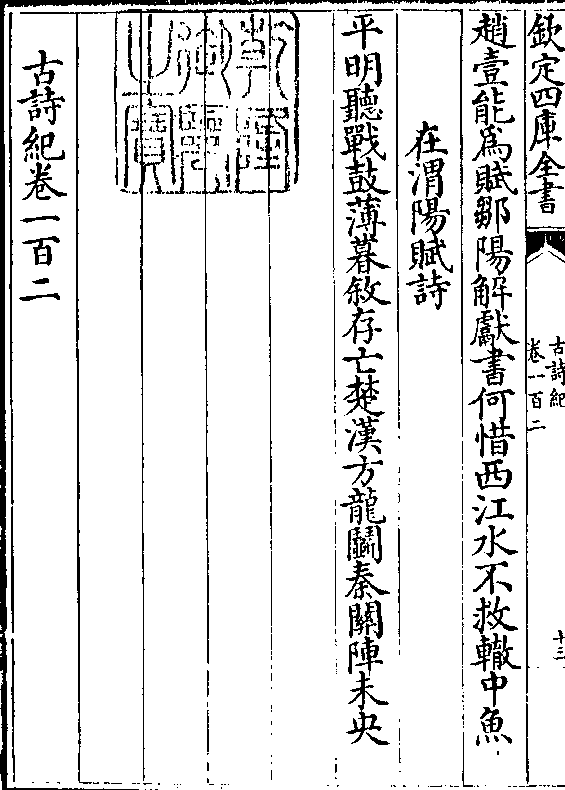 欽定四庫全書
古詩紀
卷一百二
十三
趙壹能為賦鄒陽解獻書何惜西江水不救轍中魚
在渭陽賦詩
平明聽戰鼓薄暮敘存亡楚漢方龍鬭秦關陣未央
乾隆御覽之寶
古詩紀卷一百二